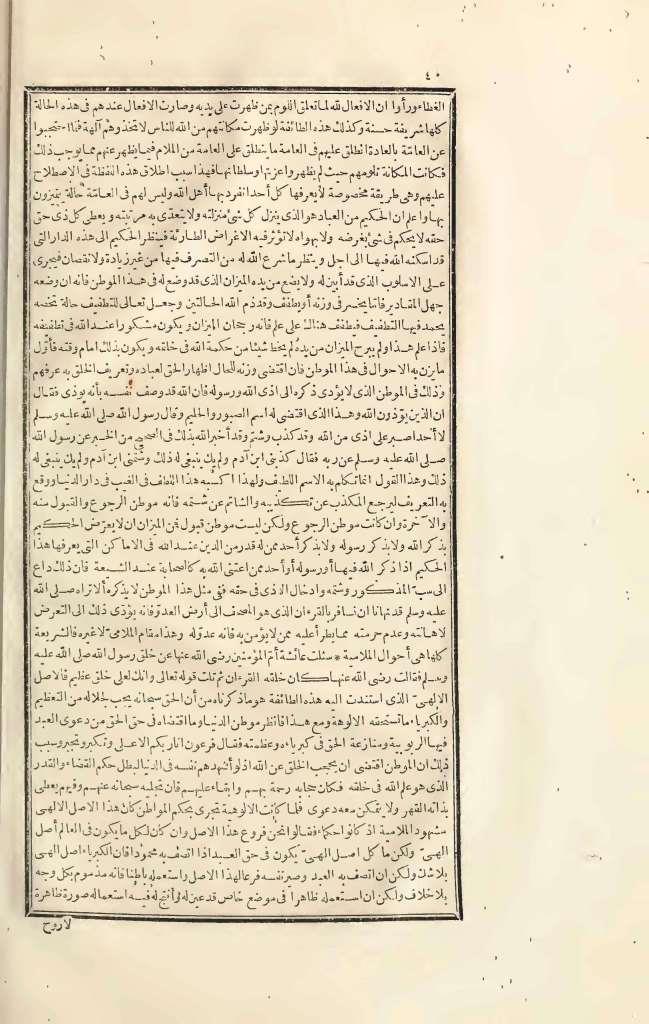 ٤٠
الغطاء ورأوا ان الافعال لله لما تعلق اللوم بمن ظهرت على يديه وصارت الافعال عندهم فى هذه الحالة
كلها شريفة حسنة وكذلك هذه الطائفة لو ظهرت مكانتهم من الله للناس لاتخذوهم آلهة فلما احتجبوا
عن العامة بالعادة انطلق عليهم فى العامة ما ينطلق على العامة من الملام فيما يظهر عنهم مما يوجب ذلك
فكانت المكانة تلومهم حيث لم يظهروا عزتها وسلطانها فهذا سبب اطلاق هذه اللفظة فى الاصطلاح
عليهم وهى طريقة مخصوصة لا يعرفها كل أحد انفرد بها أهل الله وليس لهم فى العامة حالة يتميزون
بها واعلم ان الحكيم من العباد هو الذى ينزل كل شئ منزلته ولا يتعدى به مرتبته ويعطى كل ذى حق
حقه لا يحكم فى شئ بغرضه ولا بهواه لا تؤثر فيه الاغراض الطارئة فينظر الحكيم الى هذه الدار التى
قد اسكنه الله فيها الى اجل وينظر ما شرع الله له من التصرف فيها من غير زيادة ولا نقصان فيجرى
على الاسلوب الذى قد أبين له ولا يضع من يده الميزان الذى قد وضع له فى هذا الموطن فانه ان وضعه
جهل المقادير فاما يخسر فى وزنه أو يطفف وقد ذم الله الحالتين وجعل تعالى للتطفيف حالة تخصه
يحمد فيها التطفيف فيطفف هناك على علم فانه رجحان الميزان ويكون مشكورا عند الله فى تطفيفه
فاذا علم هذا ولم يبرح الميزان من يده لم يخط شيئا من حكمة الله فى خلقه ويكون بذلك امام وقته فأول
ما يزن به الاحوال فى هذا الموطن فان اقتضى وزنه للحال اظهار الحق لعباده وتعريف الخلق به عرفهم
وذلك فى الموطن الذى لا يؤدى ذكره الى اذى الله ورسوله فان الله قد وصف نفسه بأنه يوذى فقال
ان الذين يؤذون الله وهذا الذى اقتضى له اسم الصبور والحليم وقال رسول الله صلى الله عليه وسلم
لا أحد اصبر على اذى من الله وقد كذب وشتم وقد أخبر الله بذلك فى الصحيح من الخبر عن رسول الله
صلى الله عليه وسلم عن ربه فقال كذبنى ابن آدم ولم يك ينبغى له ذلك وشتمنى ابن آدم ولم يك ينبغى له
ذلك وهذا القول انما تكلم به الاسم اللطيف ولهذا اكسبه هذا اللطف فى العتب فى دار الدنيا ووقع
به التعريف ليرجع المكذب عن تكذيبه والشاتم عن شتمه فانه موطن الرجوع والقبول منه
والآخرة وان كانت موطن الرجوع ولكن ليست موطن قبول فمن الميزان ان لا يعرض الحكيم
بذكر الله ولا بذكر رسوله ولا بذكر أحد ممن له قدر من الدين عند الله فى الاماكن التى يعرفها هذا
الحكيم اذا ذكر الله فيها أو رسوله أو أحد ممن اعتنى الله به كالصحابة عند الشيعة فان ذلك داع
الى سب المذكور وشتمه وادخال الاذى فى حقه ففى مثل هذا الموطن لا يذكره ألا تراه صلى الله
عليه وسلم قد نهانا ان نسافر بالقرءان الذى هو المصحف الى أرض العدو فانه يؤدى ذلك الى التعرض
لاهانته وعدم حرمته مما يطرأ عليه ممن لا يؤمن به فانه عدوله وهذا مقام الملامى لا غيره فالشريعة
كلها هى أحوال الملامية * سئلت عائشة أم المؤمنين رضى الله عنها عن خلق رسول الله صلى الله عليه
وسلم فقالت رضى الله عنها كان خلقه القرءان ثم تلت قوله تعالى وانك لعلى خلق عظيم فالاصل
الالهى الذى استندت اليه هذه الطائفة هو ما ذكرناه من أن الحق سبحانه يجب لجلاله من التعظيم
والكبرياء ما تستحقه الالوهة ومع هذا فانظر موطن الدنيا وما اقتضاه فى حق الحق من دعوى العبد
فيها الربوبية ومنازعة الحق فى كبرياءه وعظمته فقال فرعون انا ربكم الاعلى وتكبر وتجبر وسبب
ذلك ان الموطن اقتضى ان يحجب الخلق عن الله اذ لو أشهدهم نفسه فى الدنيا لبطل حكم القضاء والقدر
الذى هو علم الله فى خلقه فكان حجابه رحمة بهم وابقاء عليهم فان تجليه سبحانه عنهم وفيهم يعطى
بذاته القهر ولا يتمكن معه دعوى فلما كانت الالوهية تجرى بحكم المواطن كان هذا الاصل الالهى
مشهود الملامية اذ كانوا حكماء فقالوا نحن فروع هذا الاصل وان كان لكل ما يكون فى العالم أصل
الهى ولكن ما كل اصل الهى يكون فى حق العبد اذا اتصف به محمودا فان الكبرياء اصل الهى
بلا شك ولكن ان اتصف به العبد وصير نفسه فرعا لهذا الاصل واستعمله باطنا فانه مذموم بكل وجه
بلا خلاف ولكن ان استعمله ظاهرا فى موضع خاص قد عين له فيه استعماله صورة ظاهرة
لا روح